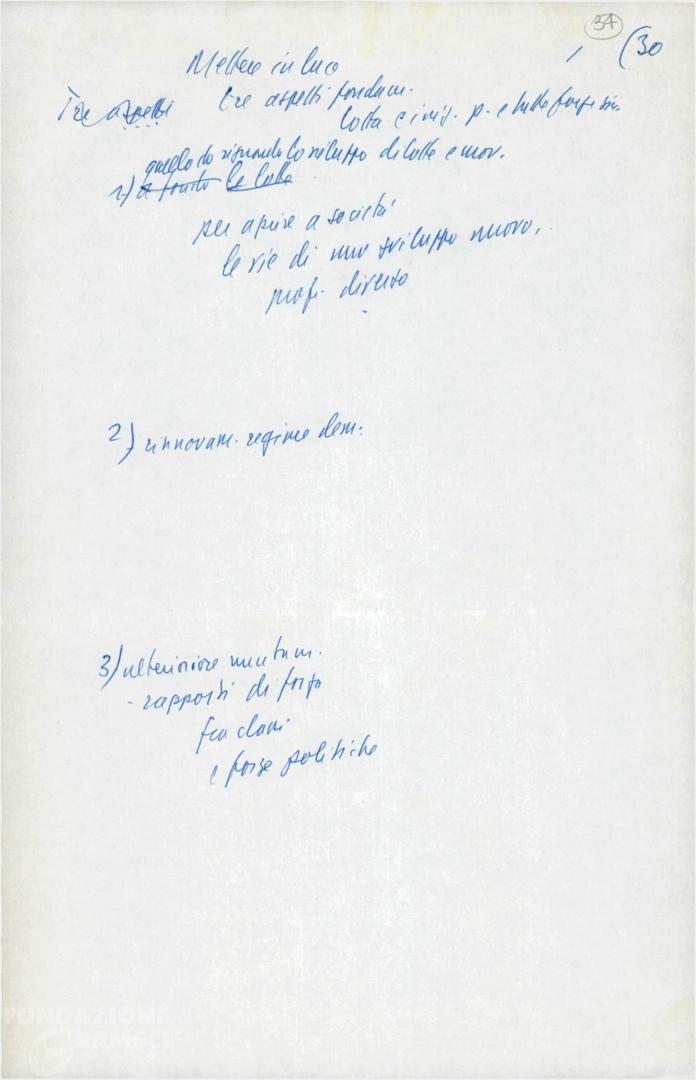 34
(30
Mettere in luce
Tre aspetti tre aspetti fondam.
lotta e iniz. p. e tutte forze sin.
quello che riguarda lo sviluppo di lotte e mov.
1) a fondo le lotte
per aprire a società
le vie di uno sviluppo nuovo,
prof. diverso
2) rinnovam. regime dem.
3) ulteriore mutam.
- rapporti di forza
fra classi
e forze politiche
FONDAZIONE
GRAMSCI